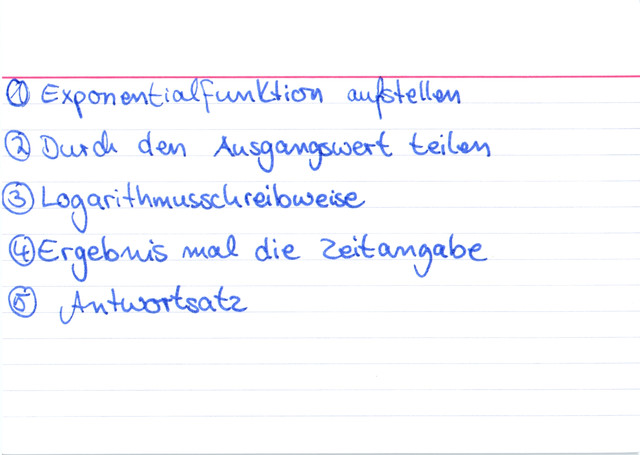 ① Exponentialfunktion aufstellen
② Durch den Ausgangswert teilen
③ Logarithmusschreibweise
④ Ergebnis mal die Zeitangabe
⑤ Antwortsatz